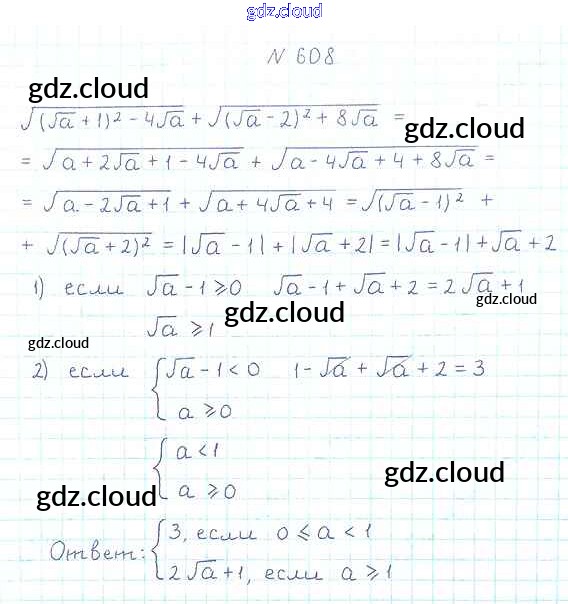 gdz.cloud
N 608
gdz.cloud
√((√a + 1)² - 4√a) + √((√a - 2)² + 8√a) =
gdz.cloud
= √(a + 2√a + 1 - 4√a) + √(a - 4√a + 4 + 8√a) =
= √(a - 2√a + 1) + √(a + 4√a + 4) = √((√a - 1)²) +
+ √((√a + 2)²) = |√a - 1| + |√a + 2| = |√a - 1| + √a + 2
1) если √a - 1 ⩾ 0 √a - 1 + √a + 2 = 2√a + 1
gdz.cloud
gdz.cloud
√a ⩾ 1
gdz.cloud
2) если { √a - 1 < 0 1 - √a + √a + 2 = 3
a ⩾ 0
{ a < 1
gdz.cloud
a ⩾ 0
gdz.cloud
Ответ: { 3, если 0 ⩽ a < 1
2√a + 1, если a ⩾ 1